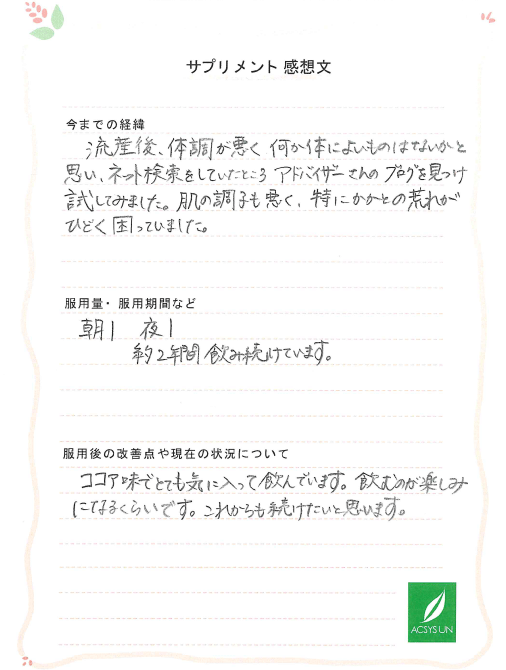 サプリメント 感想文
今までの経緯
流産後、体調が悪く 何か体によいものはないかと
思い、ネット検索をしていたところ アドバイザーさんの ブログを見つけ
試してみました。肌の調子も悪く、特にかかとの荒れが
ひどく 困っていました。
服用量・服用期間など
朝1 夜1
約2年間 飲み続けています。
服用後の改善点や現在の状況について
ココア味でとても気に入って飲んでいます。飲むのが楽しみ
になるくらいです。これからも続けたいと思います。
ACSYS UN